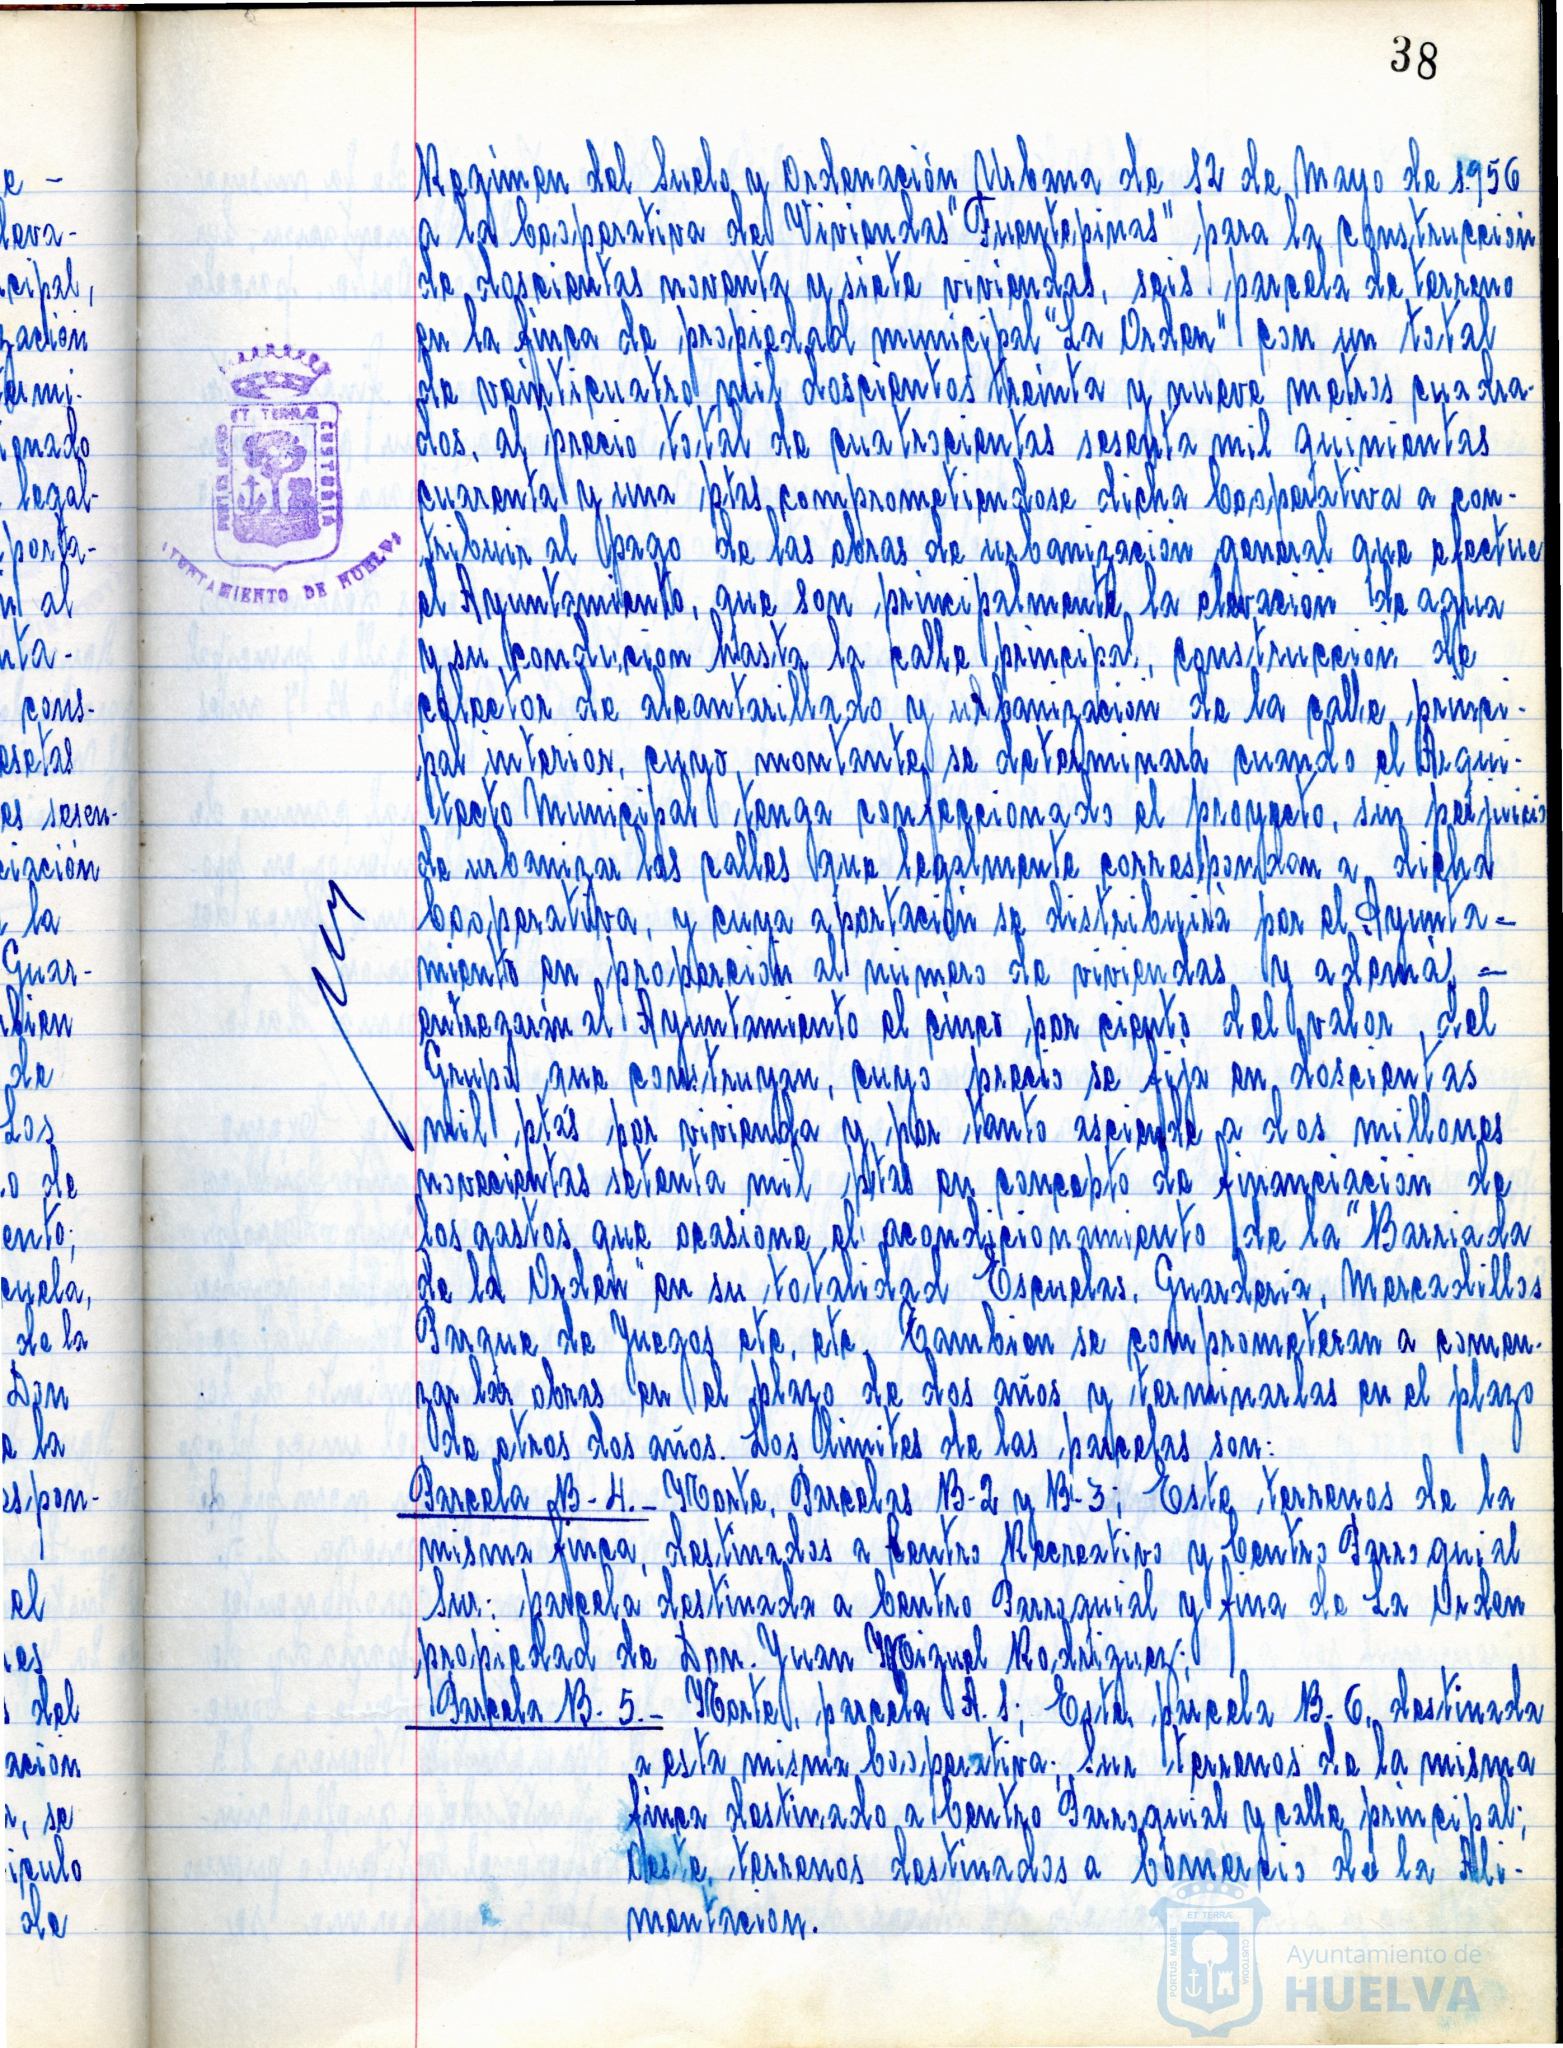 38
Regimen del Suelo y Ordenación Urbana de 12 de Mayo de 1956
a la Cooperativa de Viviendas "Fuentepinas", para la construcción
de doscientas noventa y siete viviendas, seis parcela de terreno
en la finca de propiedad municipal "La Orden" con un total
de veinticuatro mil doscientos treinta y nueve metros cuadra-
dos, al precio total de cuatrocientas sesenta mil quinientas
cuarenta y una ptas comprometiendose dicha Cooperativa a con-
tribuir al pago de las obras de urbanización general que efectue
el Ayuntamiento, que son principalmente la elevación de agua
y su conducion hasta la calle principal, construccion de
colector de alcantarillado y urbanización de la calle princi-
pal interior, cuyo montante se determinará cuando el Arqui-
tecto Municipal tenga confeccionado el proyecto, sin perjuicio
de urbanizar las calles que legalmente correspondan a dicha
Cooperativa, y cuya aportación se distribuirá por el Ayunta=
miento en proporción al numero de viviendas y además =
entregarán al Ayuntamiento el cinco por ciento del valor del
Grupo que construyan, cuyo precio se fija en doscientas
mil ptas por vivienda y por tanto asciende a dos millones
novecientas setenta mil ptas en concepto de financiación de
los gastos que ocasione el acondicionamiento de la "Barriada
de la Orden" en su totalidad Escuelas, Guarderia, Mercadillos
Parque de Juegos etc, etc. Tambien se comprometeran a comen-
zar las obras en el plazo de dos años y terminarlas en el plazo
de otros dos años. Los limites de las parcelas son:
Parcela B-4.- Norte, Parcelas B-2 y B-3; Este, terrenos de la
misma finca, destinados a Centro Recreativo y Centro Parroquial
Sur: parcela destinada a Centro Parroquial y fina de La Orden
propiedad de Don. Juan Miguel Rodriguez;
Parcela B. 5.- Norte, parcela A. 1; Este, parcela B. 6. destinada
a esta misma Cooperativa; Sur terrenos de la misma
finca destinado a Centro Parroquial y calle principal;
Oeste, terrenos destinados a Comercio de la Ali-
mentación.
e -
leva-
cipal,
zación
termi-
ignado
legal-
porta-
n al
nta-
cons-
esetas
es sesen-
ciación
la
Guar-
bien
de
Los
o de
ento;
cuela,
de la
Don
a la
espon-
el
es
del
ación
se
iculo
de
ET TERRÆ
CUSTODIA
PORTUS MARIS
AYUNTAMIENTO DE HUELVA
ET TERRÆ
PORTUS MARIS
CUSTODIA
Ayuntamiento de
HUELVA